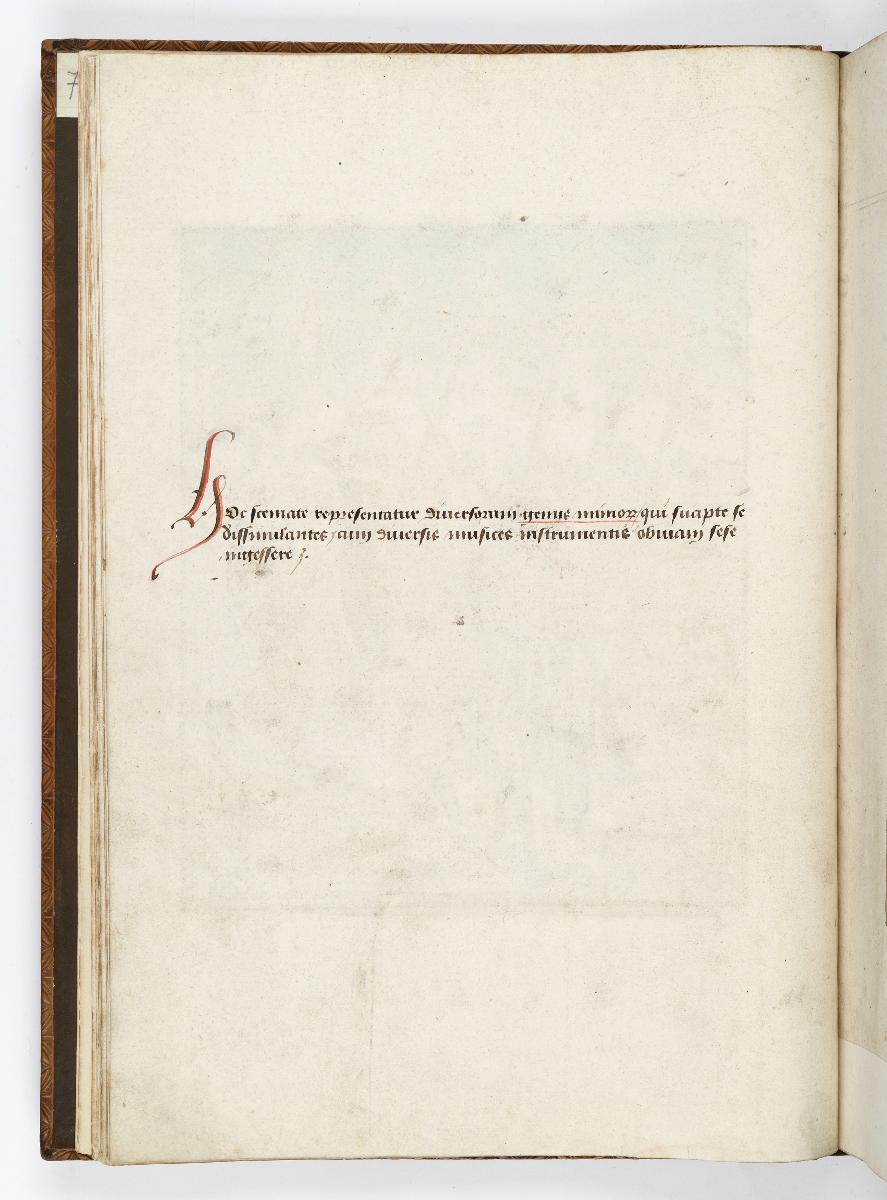 7
Hoc scemate representatur diversorum genus mimoꝝ qui suapte se
dissimulantes cum diversis musices instrumentis obviam sese
ingessere